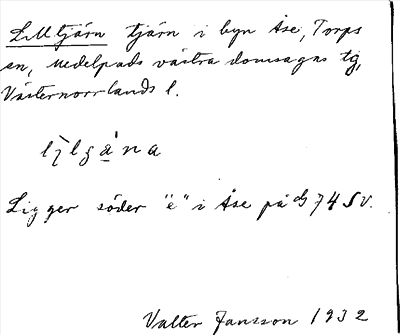 Lilltjärn tjärn i byn Åse, Torps
sn, Medelpads västra domsagas tg,
Västernorrlands l.
Ligger söder "e" i Åse på 74 SV.
Valter Jansson 1932